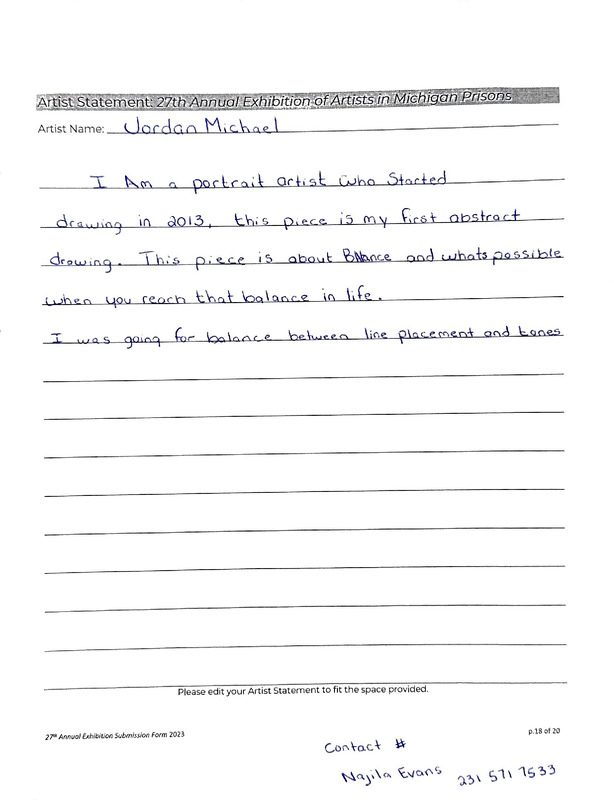 Artist Statement: 27th Annual Exhibition of Artists in Michigan Prisons
Artist Name: Jordan Michael
I Am a portrait artist who Started
drawing in 2013, this piece is my first abstract
drawing. This piece is about BAlance and whats possible
when you reach that balance in life.
I was going for balance between line placement and tones
Please edit your Artist Statement to fit the space provided.
27th Annual Exhibition Submission Form 2023
p.18 of 20
Contact #
Najila Evans 231 571 7533